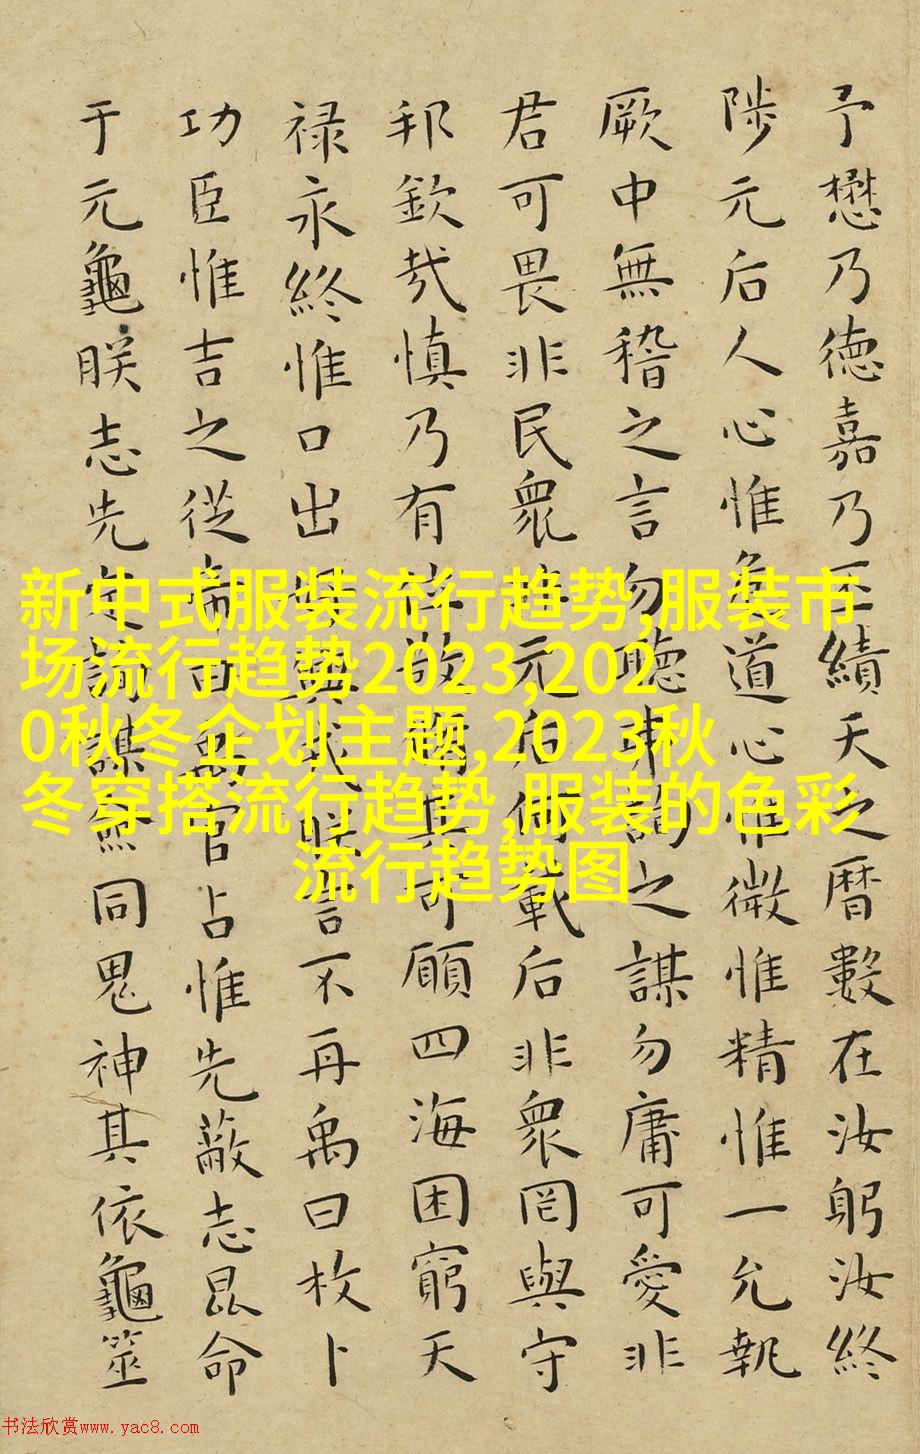 予懋乃德嘉乃丕績天之曆數在汝躬汝終
陟元后人心惟危道心惟微惟精惟一允執
厥中無稽之言勿聽弗詢之謀勿庸可愛非
君可畏非民衆非元后何戴后非衆罔與守
邦欽哉慎乃有位敬脩其可願四海困窮天
禄永終惟口出好興戎朕言不再禹曰枚卜
功臣惟吉之從帝曰禹官占惟先蔽志昆命
于元龜朕志先定詢謀僉同鬼神其依龜筮
新中式服装流行趋势,服装市
场流行趋势2023,202
0秋冬企划主题,2023秋
冬穿搭流行趋势,服装的色彩
流行趋势图
书法欣赏www.yac8.com